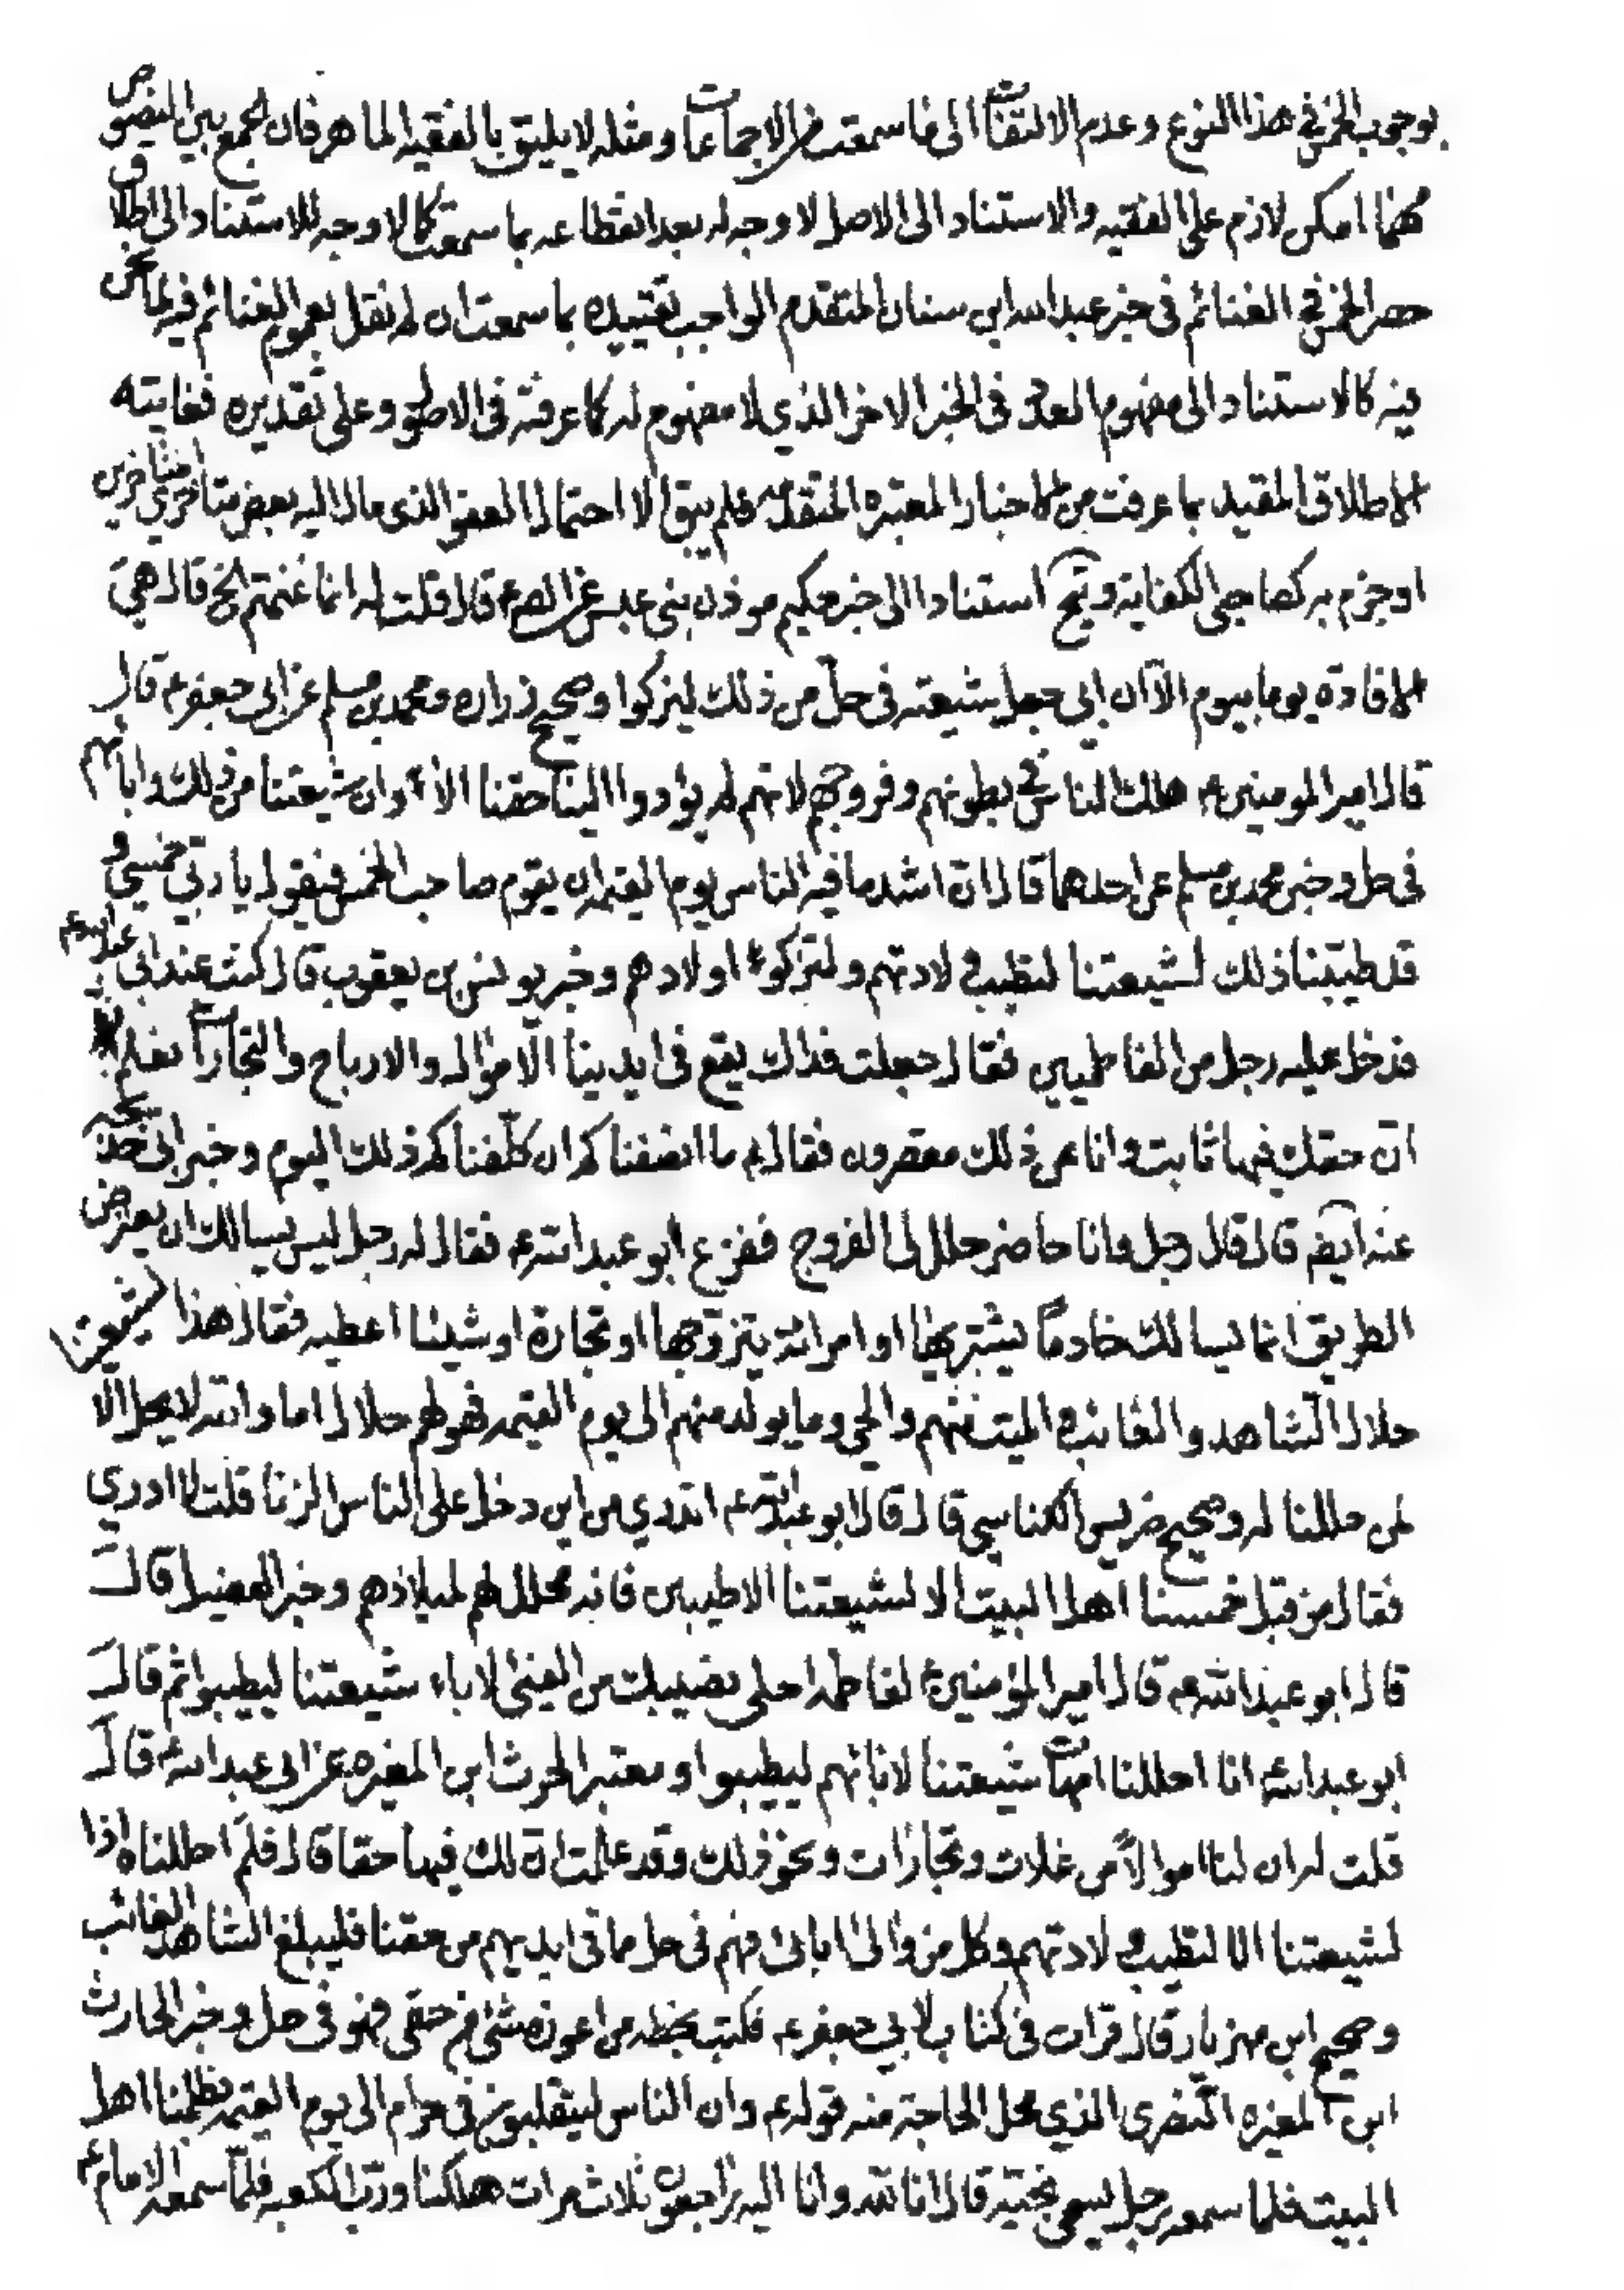 بوجوب الخمس في هذا النوع وعدم الالتفات الى ما سمعت من الاجماعات ومثله لا يليق بالفقيه الماهر فان الجمع بين النصوص
مهما امكن لازم على الفقيه والاستناد الى الاصل لا وجه له بعد انقطاعه بما سمعت كما لا وجه للاستناد الى اطلاق
حصر الخمس في الغنائم في خبر عبد الله ابن سنان المتقدم الواجب تقييده بما سمعت ان لم نقل بعموم الغنائم فيه لما نحن
فيه كالاستناد الى مفهوم العدد في الخبر الاخر الذي لا مفهوم له كما عرفته في الاصول وعلى تقديره فغايته
الاطلاق المقيد بما عرفت من الاخبار المعتبره المتقدمه فلم يبق الا احتمال العفو الذي مال اليه بعض متاخري المتاخرين
او جزم به كصاحبي الكفاية و استنادا الى خبر حكيم موذن بني عبس عن الصم قال قلت له انما غنمتم الخ قال هي
الافادة يوما بيوم الا ان ابي جعل شيعته في حل من ذلك ليزكوا وصحيح زراره ومحمد بن مسلم عن ابي جعفر ع قال
قال امير المومنين ع هلك الناس في بطونهم وفروجهم لانهم لم يؤدوا الينا حقنا الا وان شيعتنا من ذلك واباءهم
في حل وخبر محمد بن مسلم عن احدهما قال ان اشد ما فيه الناس يوم القيمه ان يقوم صاحب الخمس فيقول يا رب خمسي و
قد طيبنا ذلك لشيعتنا لتطيب ولادتهم ولتزكوا اولادهم وخبر يونس بن يعقوب قال كنت عند ابي عبد الله عم
فدخل عليه رجل من القماطيين فقال جعلت فداك يقع في ايدينا الاموال والارباح والتجارات نعلم
ان حقك فيها ثابت وانا عن ذلك مقصرون فقال ع ما انصفناكم ان كلفناكم ذلك اليوم وخبر ابي خديجه
عنه ايضا قال قال رجل وانا حاضر حلل لي الفروج ففزع ابو عبد الله ع فقال له رجل ليس يسالك ان يعترض
الطريق انما يسالك خادما يشتريها او امرائة يتزوجها او تجارة او شيئا اعطيه فقال هذا لشيعتنا
حلال الشاهد والغائب والميت منهم والحي وما يولد منهم الى يوم القيمه فهو لهم حلال اما والله لا يحل الا
لمن حللنا له وصحيح ضريس الكناسي قال قال ابو عبد الله عم اتدري من اين دخل على الناس الزنا قلت لا ادري
فقال من قبل خمسنا اهل البيت الا لشيعتنا الاطيبين فانه محلل لهم لميلادهم وخبر الفضيل قال
قال ابو عبد الله ع قال امير المؤمنين ع لفاطمه احلي نصيبك من الفيئ لاباء شيعتنا ليطيبوا ثم قال
ابو عبد الله ع انا احللنا امهات شيعتنا لابائهم ليطيبوا ومعتبر الحرث ابن المغيره عن ابي عبد الله ع قال
قلت له ان لنا اموالا من غلات وتجارات ونحو ذلك وقد علمت ان لك فيها حقا قال فلم احللناه اذا
لشيعتنا الا لتطيب ولادتهم وكل من والى ابائي فهم في حل مما في ايديهم من حقنا فليبلغ الشاهد الغائب
وصحيح ابن مهزيار قال قرات في كتاب لابي جعفر ع فكتب بخطه من اعوزه شئ من حقي فهو في حل وخبر الحارث
ابن المغيره النضري الذي محل الحاجة منه قوله ع وان الناس ليتقلبون في حرام الى يوم القيمه بظلمنا اهل
البيت فلما سمعه رجل يسمى نجية قال انا لله وانا اليه راجعون ثلاث مرات هلكنا ورب الكعبه فلما سمعه الامام ع